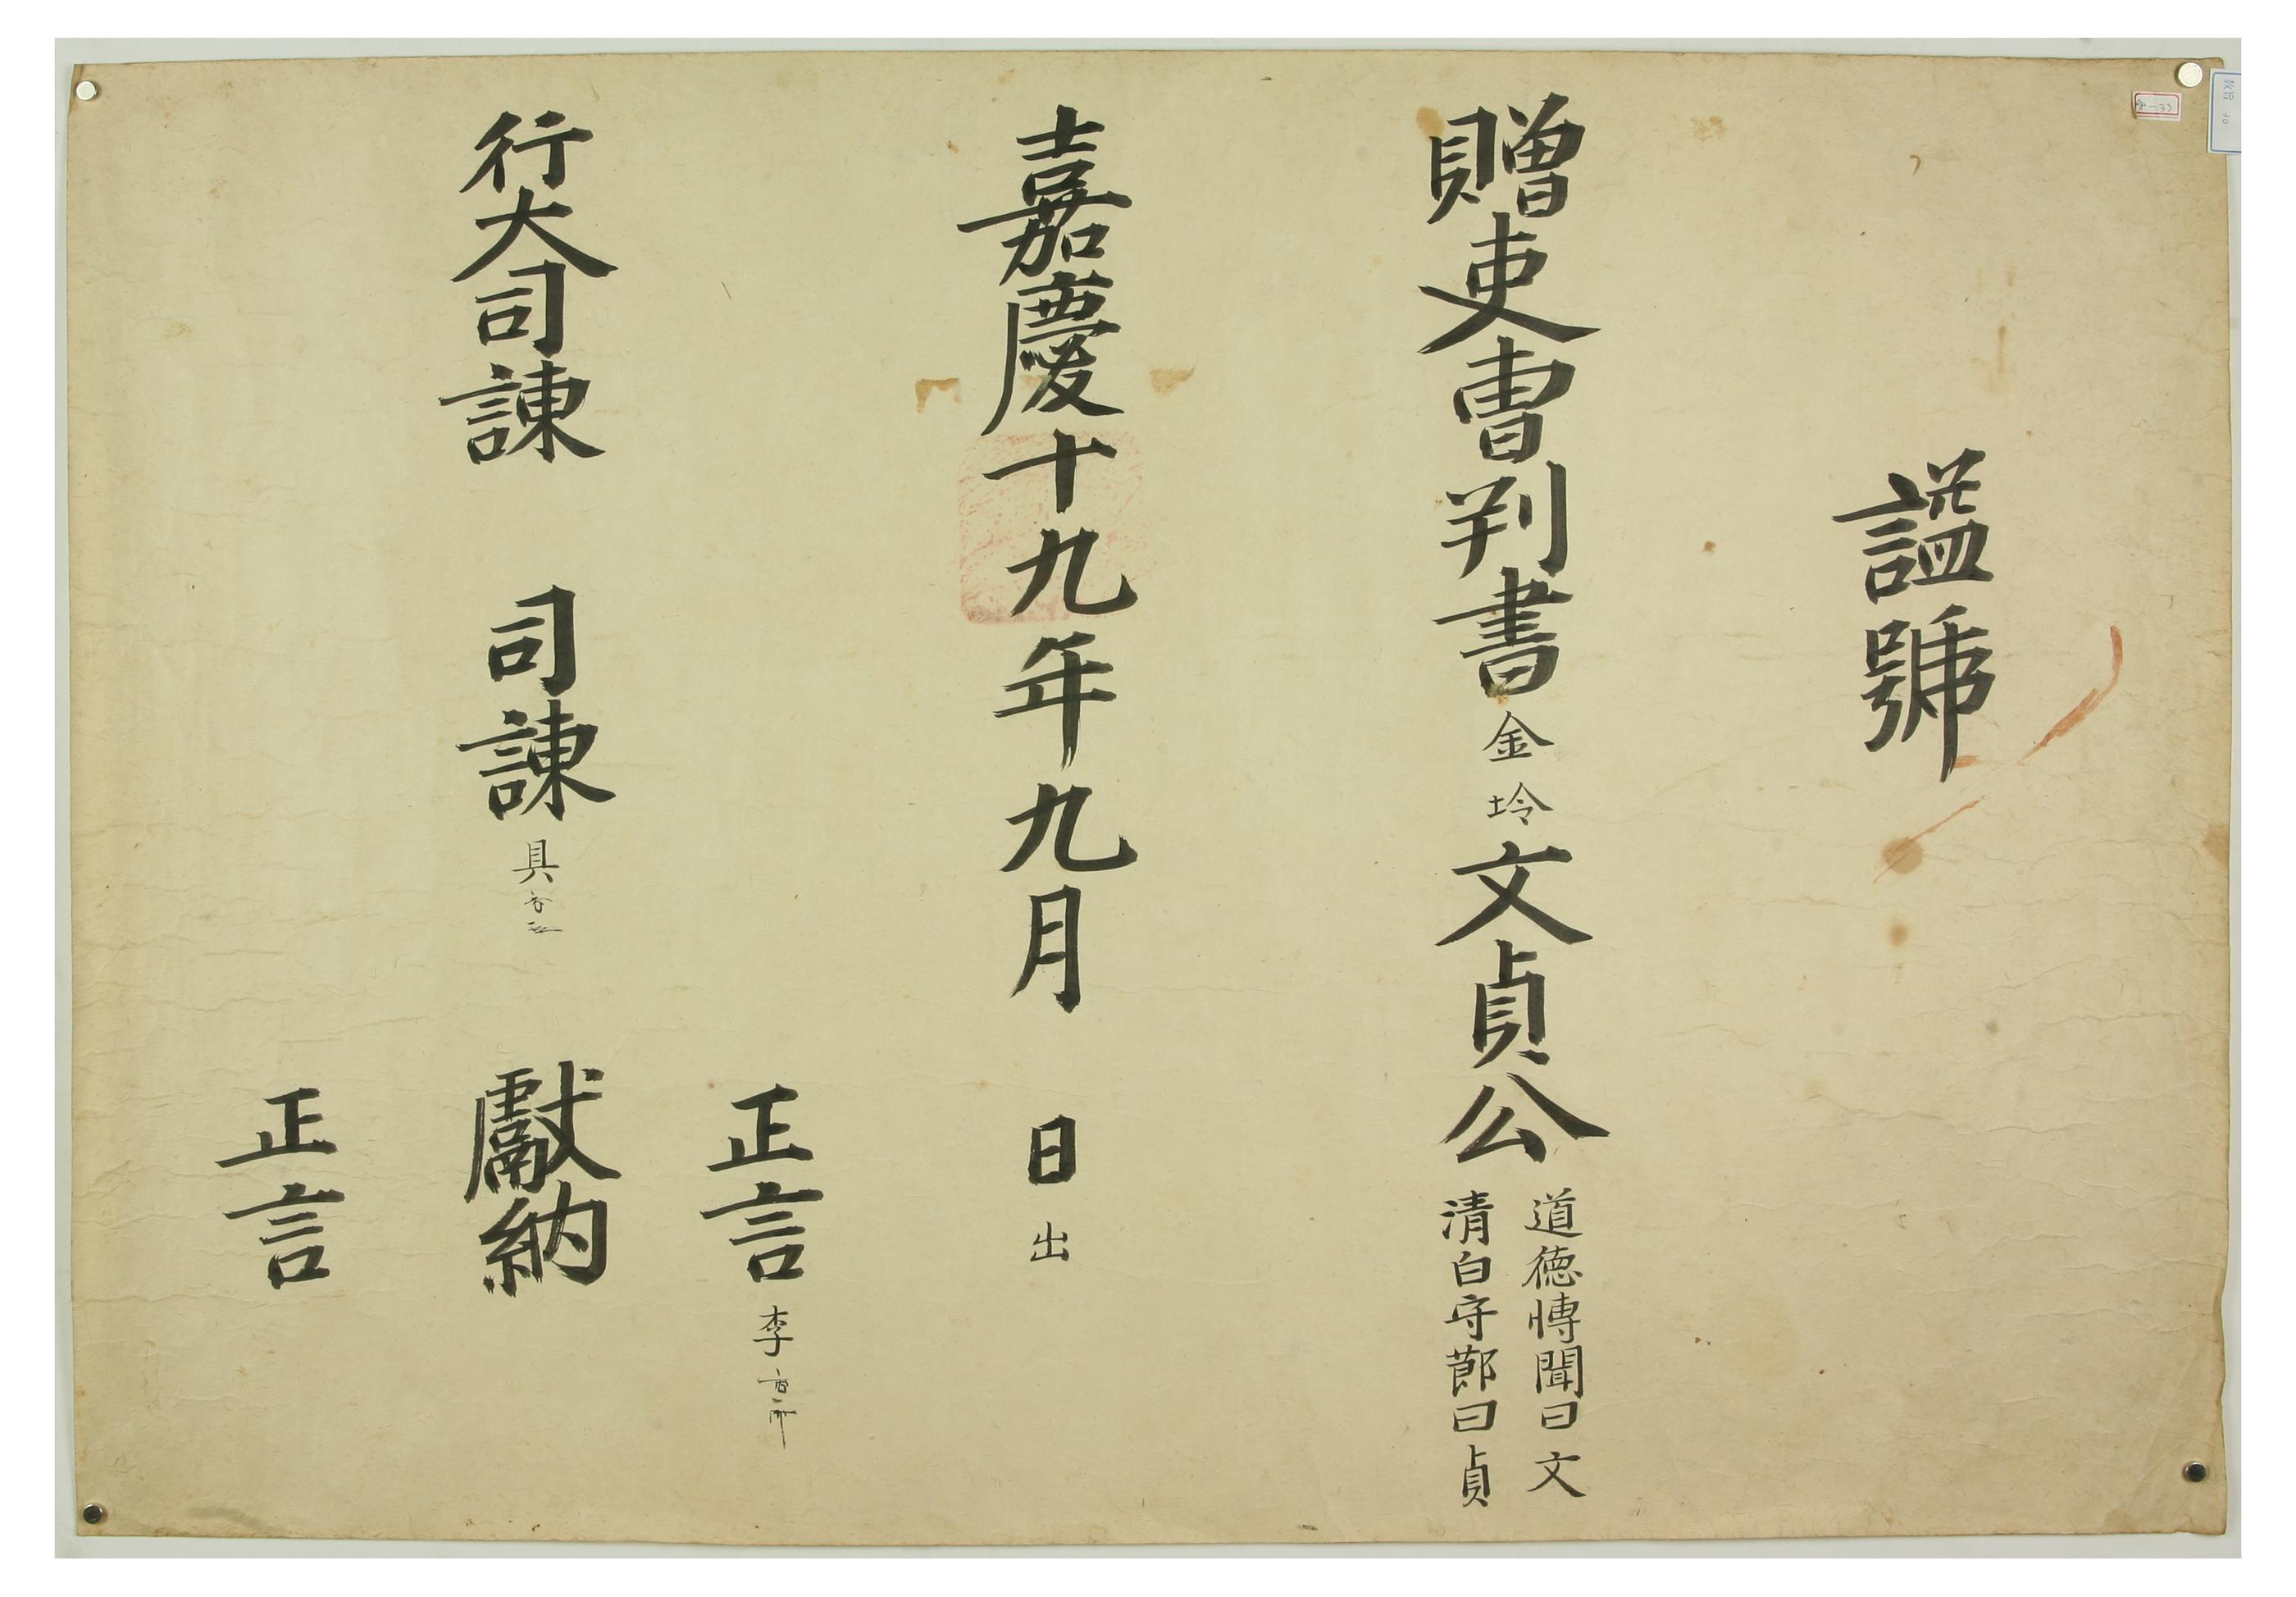 諡號
贈吏曹判書金坽文貞公
道德博聞曰文
清白守節曰貞
嘉慶十九年九月 日出
正言李
行大司諫 司諫具 獻納
正言